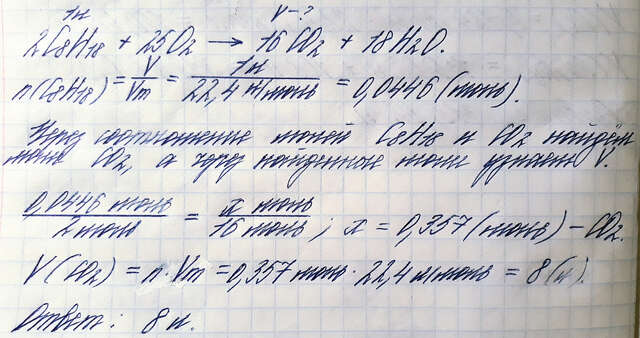 1л V-?
2C8H18 + 25O2 → 16CO2 + 18H2O.
n(C8H18) = V/Vm = 1л/22,4 л/моль = 0,0446 (моль).
Через соотношение молей C8H18 и CO2 найдём
моли CO2, а через найденные моли узнаем V.
0,0446 моль/2 моль = x моль/16 моль; x = 0,357 (моль) – CO2.
V(CO2) = n·Vm = 0,357 моль · 22,4 л/моль = 8 (л).
Ответ: 8 л.